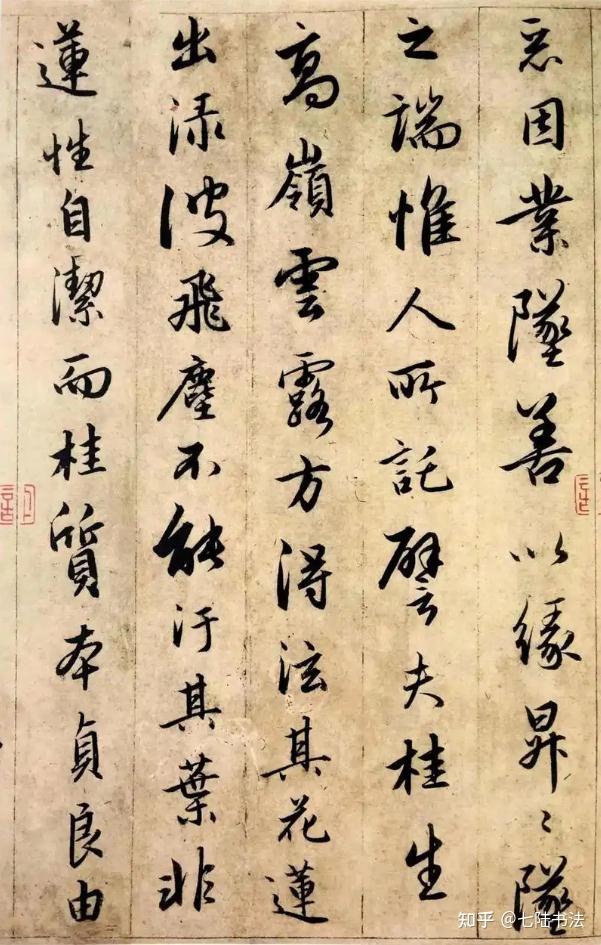 惡因業墜善以緣昇〻墜
之端惟人所託譬夫桂生
高嶺雲露方得泫其花蓮
出淥波飛塵不能汙其葉非
蓮性自潔而桂質本貞良由
知乎 @七陆书法